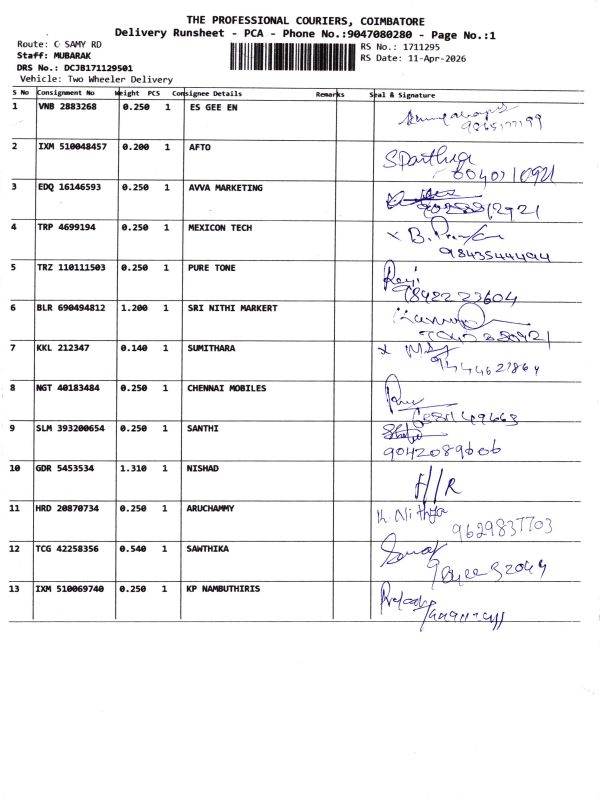 THE PROFESSIONAL COURIERS, COIMBATORE
Delivery Runsheet - PCA - Phone No.:9047080280 - Page No.:1
Route: G SAMY RD
RS No.: 1711295
Staff: MUBARAK
RS Date: 11-Apr-2026
DRS No.: DCJB171129501
Vehicle: Two Wheeler Delivery
S No Consignment No Weight PCS Consignee Details Remarks Seal & Signature
1 VNB 2883268 0.250 1 ES GEE EN
2 IXM 510048457 0.200 1 AFTO
3 EDQ 16146593 0.250 1 AVVA MARKETING
4 TRP 4699194 0.250 1 MEXICON TECH x B.
9843544494
5 TRZ 110111503 0.250 1 PURE TONE Ravi
9842223604
6 BLR 690494812 1.200 1 SRI NITHI MARKERT
7 KKL 212347 0.140 1 SUMITHARA x
9444627864
8 NGT 40183484 0.250 1 CHENNAI MOBILES
9 SLM 393200654 0.250 1 SANTHI
9042089606
10 GDR 5453534 1.310 1 NISHAD
11 HRD 20870734 0.250 1 ARUCHAMMY K. Nithya
9629837703
12 TCG 42258356 0.540 1 SAWTHIKA
13 IXM 510069740 0.250 1 KP NAMBUTHIRIS